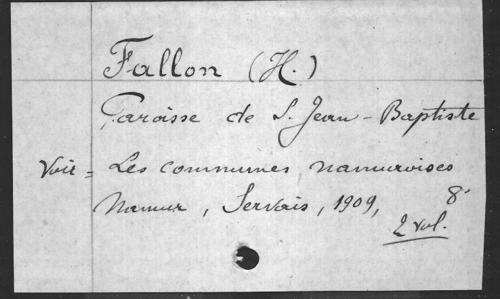 Fallon (H.)
Paroisse de S. Jean-Baptiste
Voir = Les communes namuroises
Namur, Servais, 1909, 8°
2 vol.